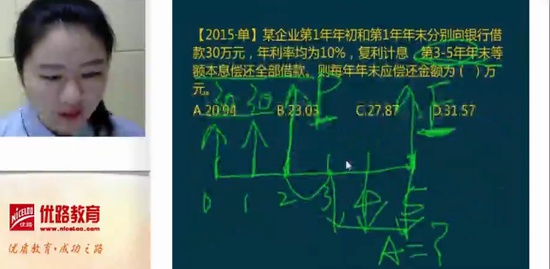 【2015·单】某企业第1年年初和第1年年末分别向银行借
款30万元，年利率均为10%，复利计息，第3-5年年末等
额本息偿还全部借款。则每年年末应偿还金额为（ ）万
元。
A.20.94 B.23.03 C.27.87 D.31.57
30 30 P F
0 1 2 3 4 5
A=?
NICELOO
优路
优路教育
www.niceloo.com
优质教育·成功之路